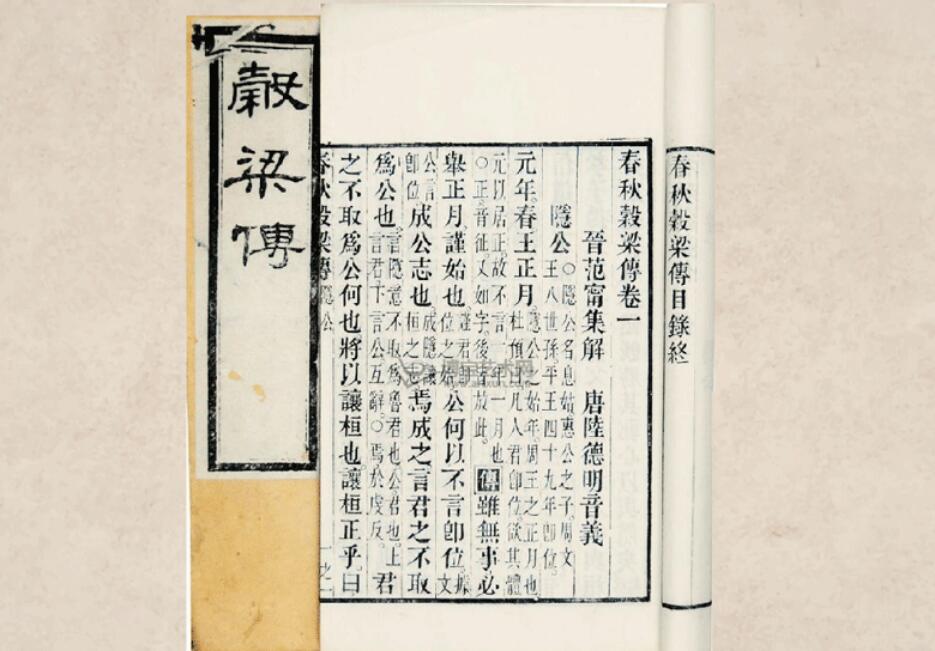 穀梁傳
春秋穀梁傳目錄終
春秋穀梁傳卷一
晉范甯集解 唐陸德明音義
隱公 ○隱公名息姑惠公之子。周文王八世孫。平王四十九年卽位。
元年。春王正月。隱公之始年。周王之正月也杜預曰凡人君卽位。欲其體
元以居正。故不言一年一月也○正音征。又如字。後皆放此。傳雖無事必
舉正月。謹始也。謹君卽位之始。公何以不言卽位。據文
公言卽位。成公志也。成隱讓桓之志。焉成之言君之不取
爲公也。言隱意不取爲魯君也。公君也。上言君。下言公互辭。○焉於虔反。君
之不取爲公何也將以讓桓也讓桓正乎曰
春秋穀梁傳 隱公 一之一